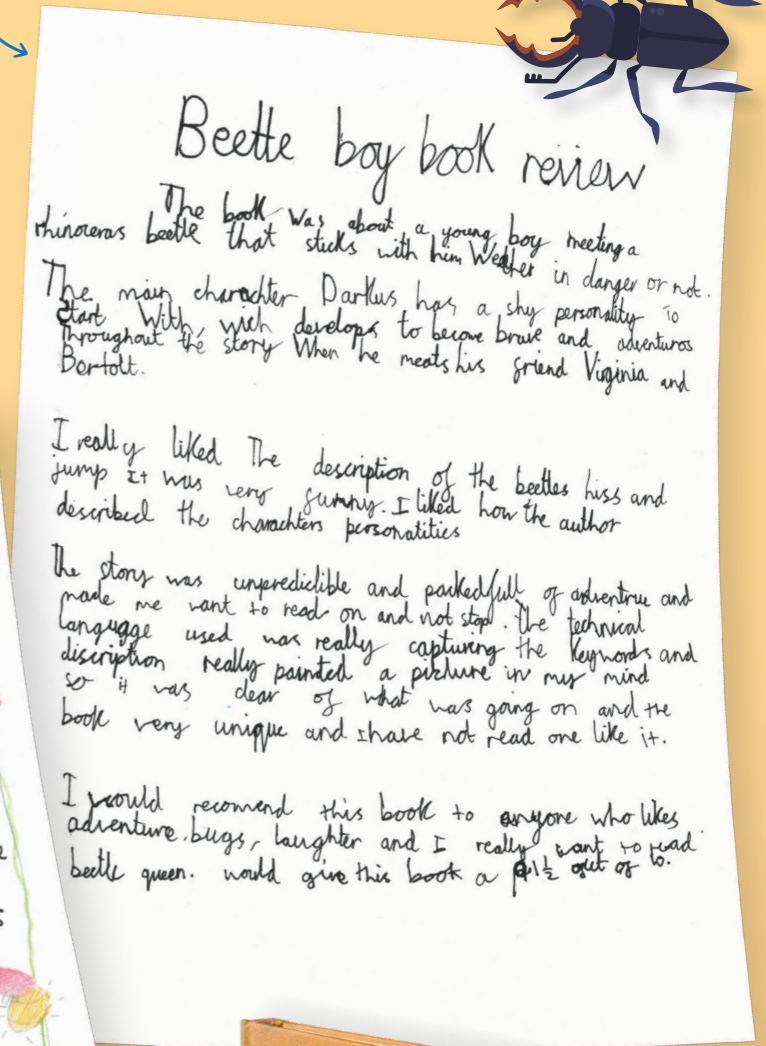 Beetle boy book review
The book was about a young boy meeting a
rhinoceras beetle that sticks with him Wether in danger or not.
The main charachter Darkus has a shy personality To
start With, wich develops to become brave and adventuros
throughout the story When he meats his friend Virginia and
Bertolt.
I really liked The description of the beetles hiss and
jump It was very funny. I liked how the author
described the charachters personatities
The story was unprediclible and packedfull of adventrue and
made me want to read on and not stop. The technical
langugge used was really capturing the keywords and
discription really painted a picture in my mind
so it was clear of what was going on and the
book very unique and I have not read one like it.
I would recomend this book to anyone who likes
adventure. bugs, laughter and I really want to read
beetle queen. would give this book a 9 1/2 out of 10.